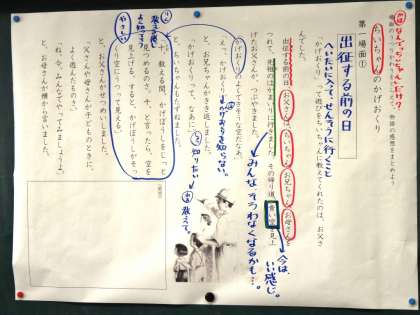 なんで、ちいちゃんだけ?
物語の感想をまとめよう
ちいちゃんのかげおくり
第一場面①
出征する前の日
へいたいに入って、せんそうに行くこと
「かげおくり」って遊びをちいちゃんに教えてくれたのは、お父さ
んでした。
出征する前の日、お父さんは、ちいちゃん、お兄ちゃん、お母さんを
つれて、先祖のはかまいりに行きました。その帰り道、青い空を見上
げたお父さんが、つぶやきました。
今は、いい感じ。
みんな、そろわなくなるかも…。
「かげおくりのよくできそうな空だなあ。」
「えっ、かげおくり。」
と、お兄ちゃんがきき返しました。
「かげおくりって、なあに。」
と、ちいちゃんもたずねました。
知りたい
教えて。
「十、数える間、かげぼうしをじっと
見つめるのさ。十、と言ったら、空を
見上げる。すると、かげぼうしがそっ
くり空にうつって見える。」
と、お父さんがせつめいしました。
「父さんや母さんが子どものときに、
よく遊んだものさ。」
「ね。今、みんなでやってみましょうよ。」
と、お母さんが横から言いました。
やさしい